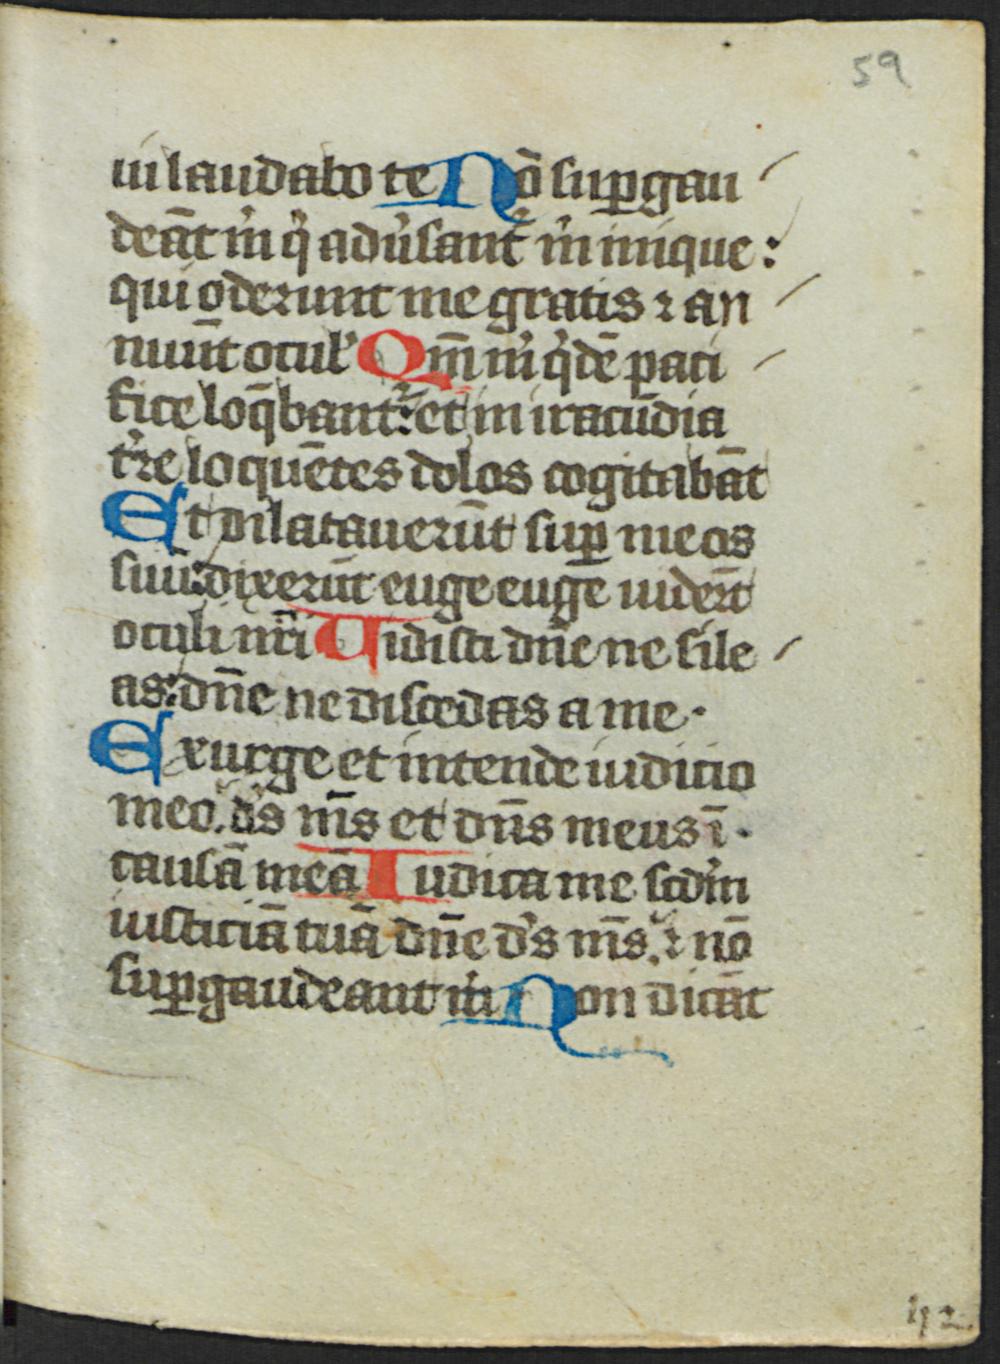 59
ui laudabo te Nō suꝑgau
deāt m̉ q̉ adu̓sant᷑ m̉ inique :
qui oderunt me gratis ⁊ an
nuūt ocul᷑ Qm̄ m̉ q̉dē paci
fice loq̄bant᷑: et in iracūdia
tr̄e loquētes dolos cogitabāt
Et dilatauerūt suꝑ me os
suū: dixerūt euge euge uider̄t
oculi nr̄i Uidisti dn̄e ne sile
as: dn̄e ne discedas a me .
Exurge et intende iudicio
meo. ds̄ ms̄ et dn̄s meus ī .
causā meā Iudica me scdm̄
iusticiā tuā dn̄e ds̄ ms̄. ⁊ nō
suꝑgaudeant m̉ Non dicāt